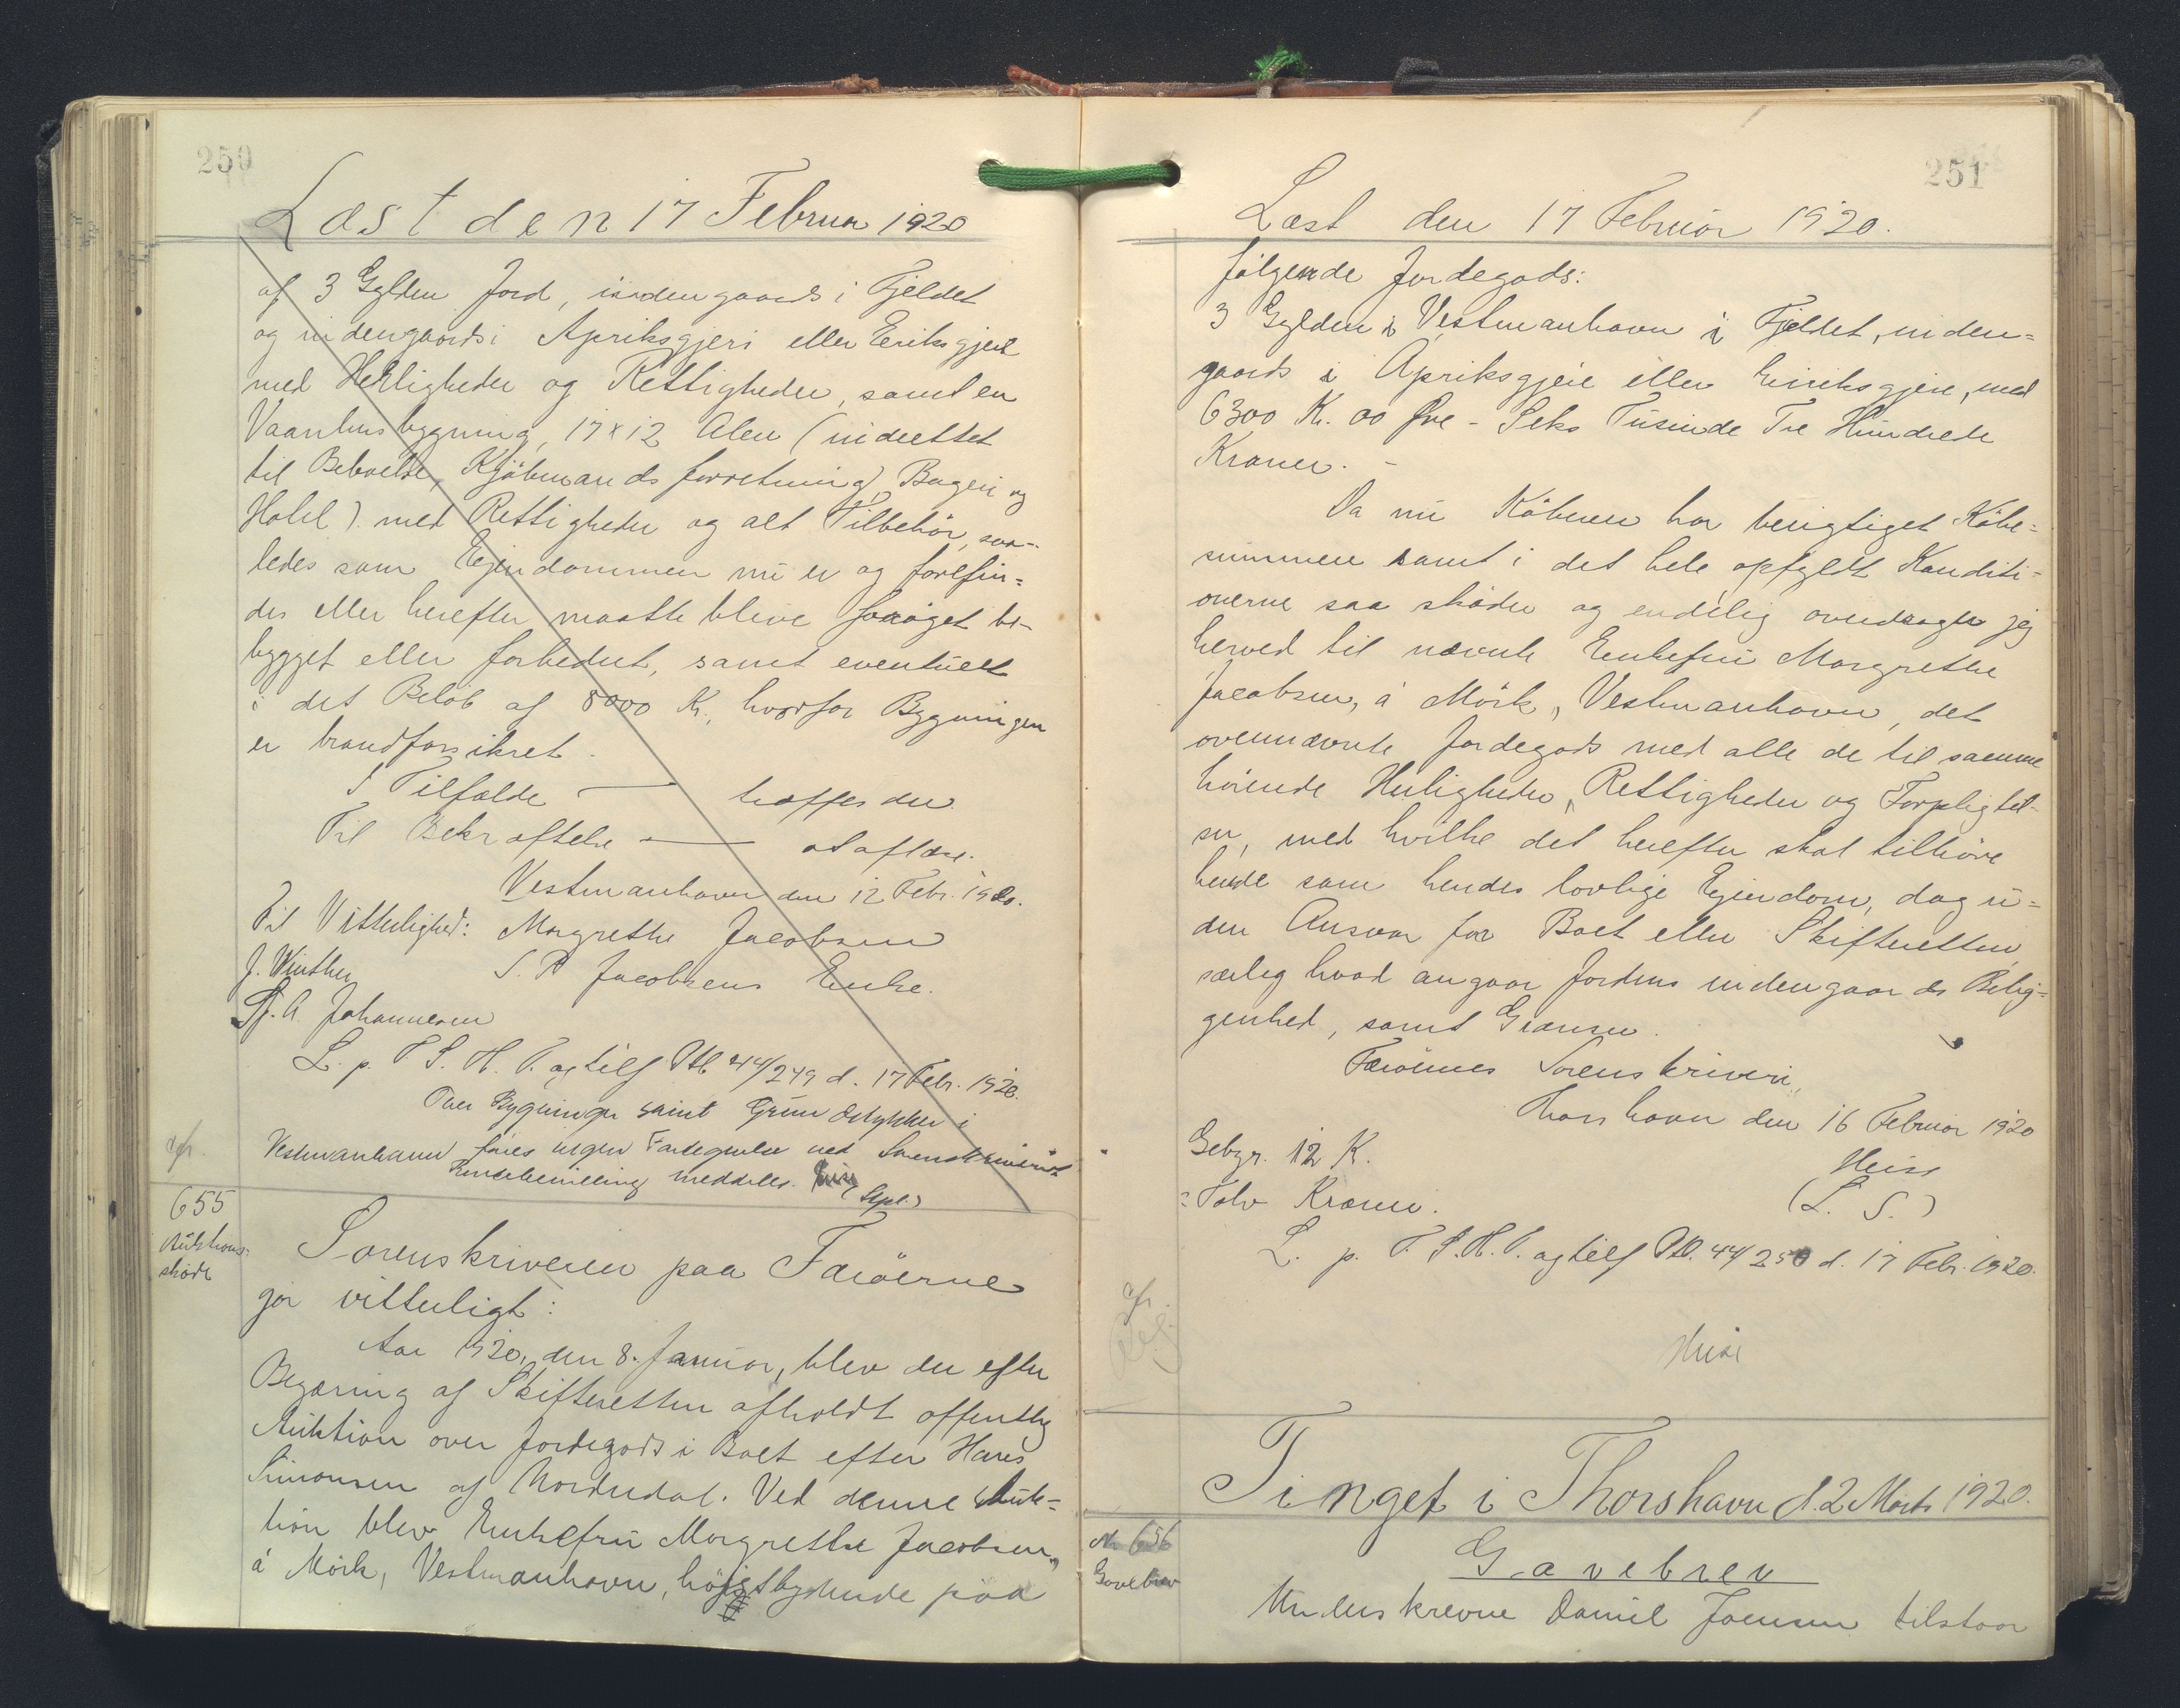 250
Læst den 17 Februar 1920
af 3 Gylden Jord, indengaards i Fjeldet
og indengaards i Apriksgjeri eller Eriksgjeri
med Herligheder og Rettigheder, samt en
Vaanhusbygning, 17 x 12 Alen (indrettet
til Beboelse, Kjöbmandsforretning, Bageri og
Hotel) med Rettigheder og alt Tilbehör, saa-
ledes som Ejendommen nu er og forefin=
des eller herefter maatte blive foröget be-
bygget eller forbedret, samt eventuelt
i det Belöb af 8000 Kr., hvorfor Bygningen
er brandforsikret.
I Tilfælde — træffes der
Til Bekræftelse — at aflæse.
Vestmanhavn den 12 Febr. 1920.
Til Vitterlighed: Margrethe Jacobsen
J. Winther S. P. Jacobsens Enke.
Sj. A. Johannesen
L. p. T. S. H. T. og tilf Ptb 44/249 d. 17 Febr. 1920.
Over Bygninger samt Grundstykker i
Vestmanhavn föres ingen Jordegnsbog ved Sorenskriveriet
Kundebevilling meddeles. Heise
(Stpl.)
655
Auktions=
sköde
Sorenskriveren paa Færöerne
gör vitterligt:
Aar 1920, den 8. Januar, blev der efter
Begæring af Skifteretten afholdt offentlig
Auktion over Jordegods i Boet efter Hans
Simonsen af Nordredal. Ved denne Auk=
tion blev Enkefru Margrethe Jacobsen,
á Mörk, Vestmanhavn, höjstbydende paa
251
Læst den 17 Februar 1920.
fölgende Jordegods:
3 Gylden i Vestmanhavn i Fjeldet, inden=
gaards i Apriksgjeie eller Eiriksgjeie, med
6300 Kr. 00 Øre - Seks Tusinde Tre Hundrede
Kroner. -
Da nu Köberen har berigtiget Köbe=
summen samt i det hele opfyldt Konditi=
onerne saa sköder og endelig overdrager jeg
herved til nævnte Enkefru Margrethe
Jacobsen, á Mörk, Vestmanhavn, det
ovennævnte Jordegods med alle de til samme
hörende Herligheder, Rettigheder og Forpligtel-
ser, med hvilke det herefter skal tilhöre
hende som hendes lovlige Ejendom, dog u=
den Ansvar for Boet eller Skifteretten,
særlig hvad angaar Jordens indengaards Belig=
genhed, samt Grænser.
Færöernes Sorenskriveri,
Thorshavn den 16 Februar 1920
Gebyr. 12 K. Heise
: Tolv Kroner. (L. S.)
L. p. T. S. H. T. og tilf Ptb. 44/250 d. 17 Febr. 1920.
Heise
Tinget i Thorshavn d. 2 Marts 1920.
Nr 656
Gavebrev
Gavebrev
Underskrevne Daniel Joensen tilstaar